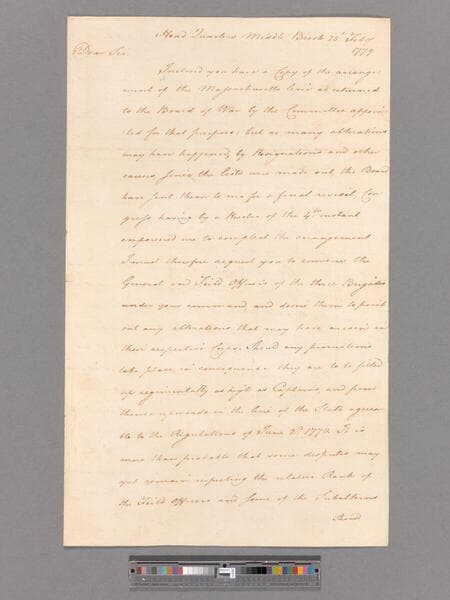 Head Quarters Middle Brook 25th Feby
1779
Dear Sir
Inclosed you have a Copy of the arrange-
ment of the Massachusetts line as returned
to the Board of War by the Committee appoin-
ted for that purpose: but as many alterations
may have happened, by Resignations and other
causes, since the lists were made out, the Board
have sent them to me for a final revisal, Con
gress having by a Resolve of the 4th instant
empowered me to compleat the arrangement
I must therefore request you to convene the
General and Feild Officers of the three Brigades
under your command, and desire them to point
out any alterations that may have arisen in
their respective Corps. Should any promotions
take place in consequence they are to be filled
up regimentally as high as Captains, and from
thence upwards in the line of the State agrea-
ble to the Regulations of June 2d 1778. It is
more than probable that some disputes may
yet remain respecting the relative Rank of
the Feild Officers and some of the Subalterns
Should